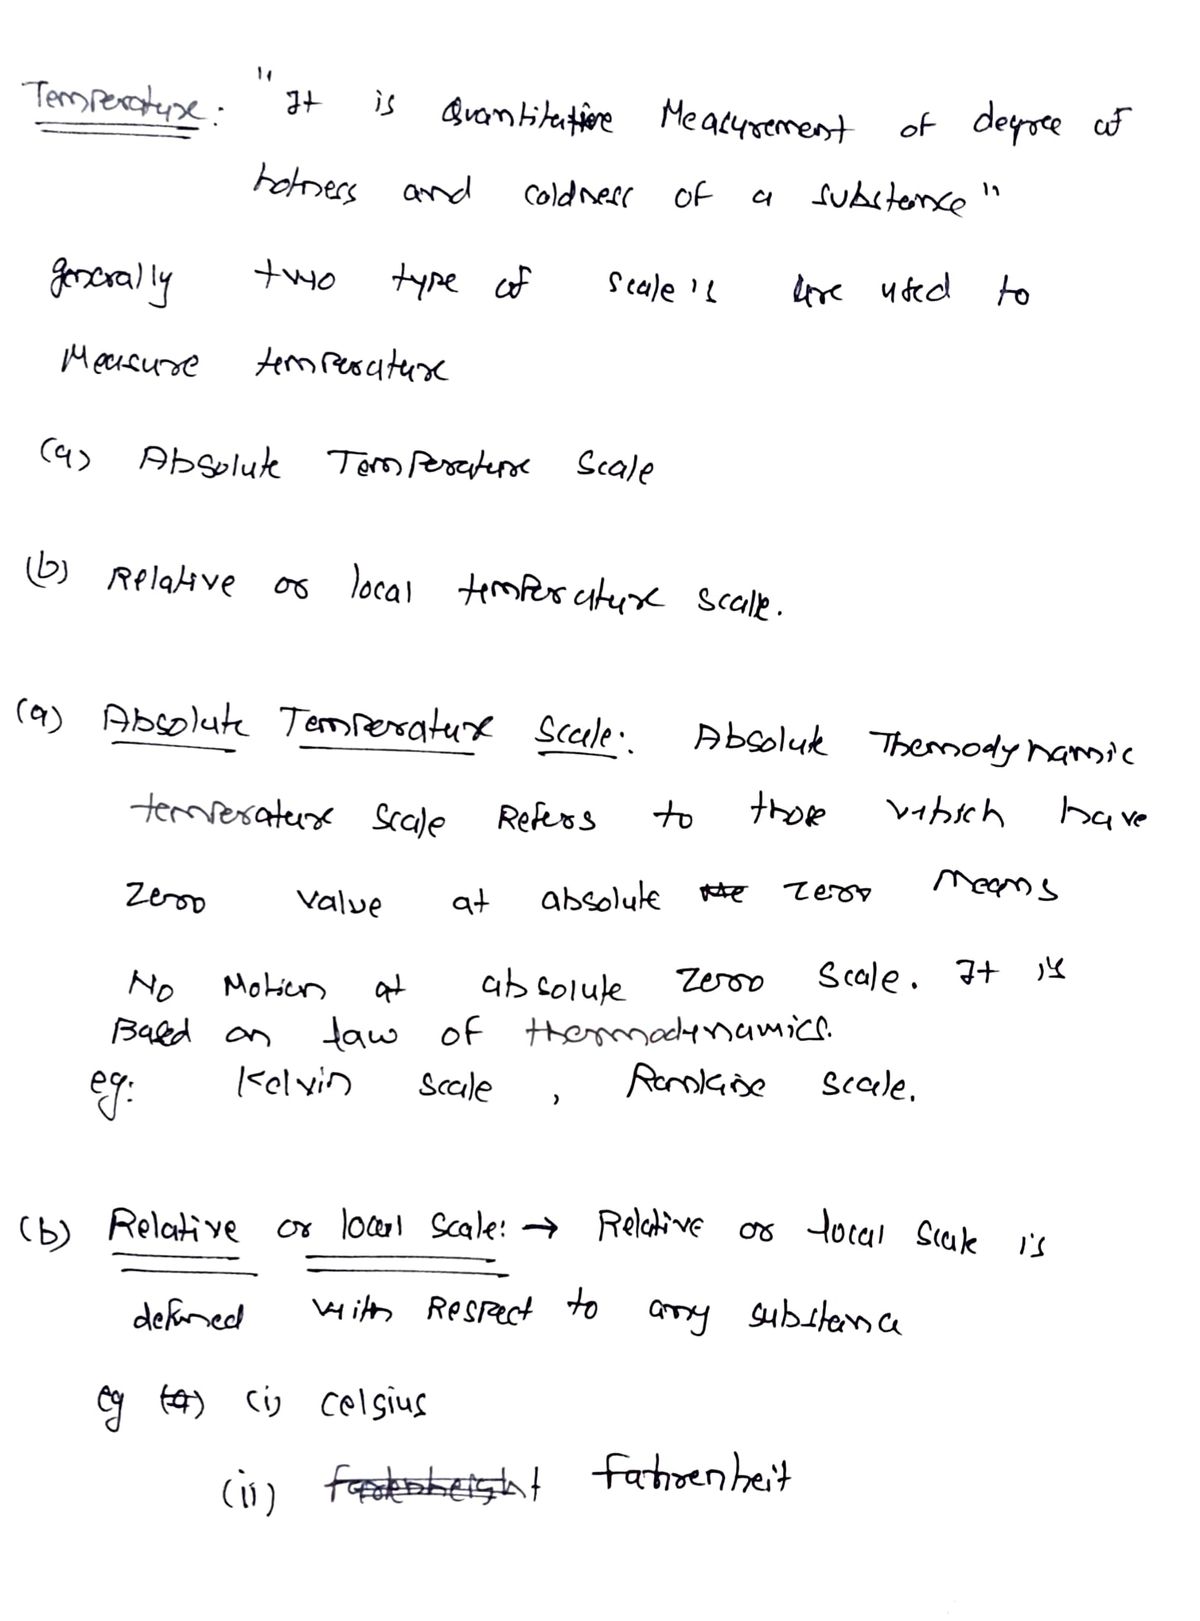 Temperature: "It is Quantitative Measurement of degree of
hotness and coldness of a substance"
generally two type of scale's are used to
Measure temperature
(a) Absolute Temperature Scale
(b) Relative or local temperature scale.
(a) Absolute Temperature Scale: Absolute Themodynamic
temperature scale Refers to those which have
zero value at absolute zero means
No Motion at absolute zero scale. It is
Based on law of thermodynamics.
eg: Kelvin scale, Rankine scale.
(b) Relative or local scale: → Relative or local scale is
defined with Respect to any substance
eg (i) celsius
(ii) fahrenheit